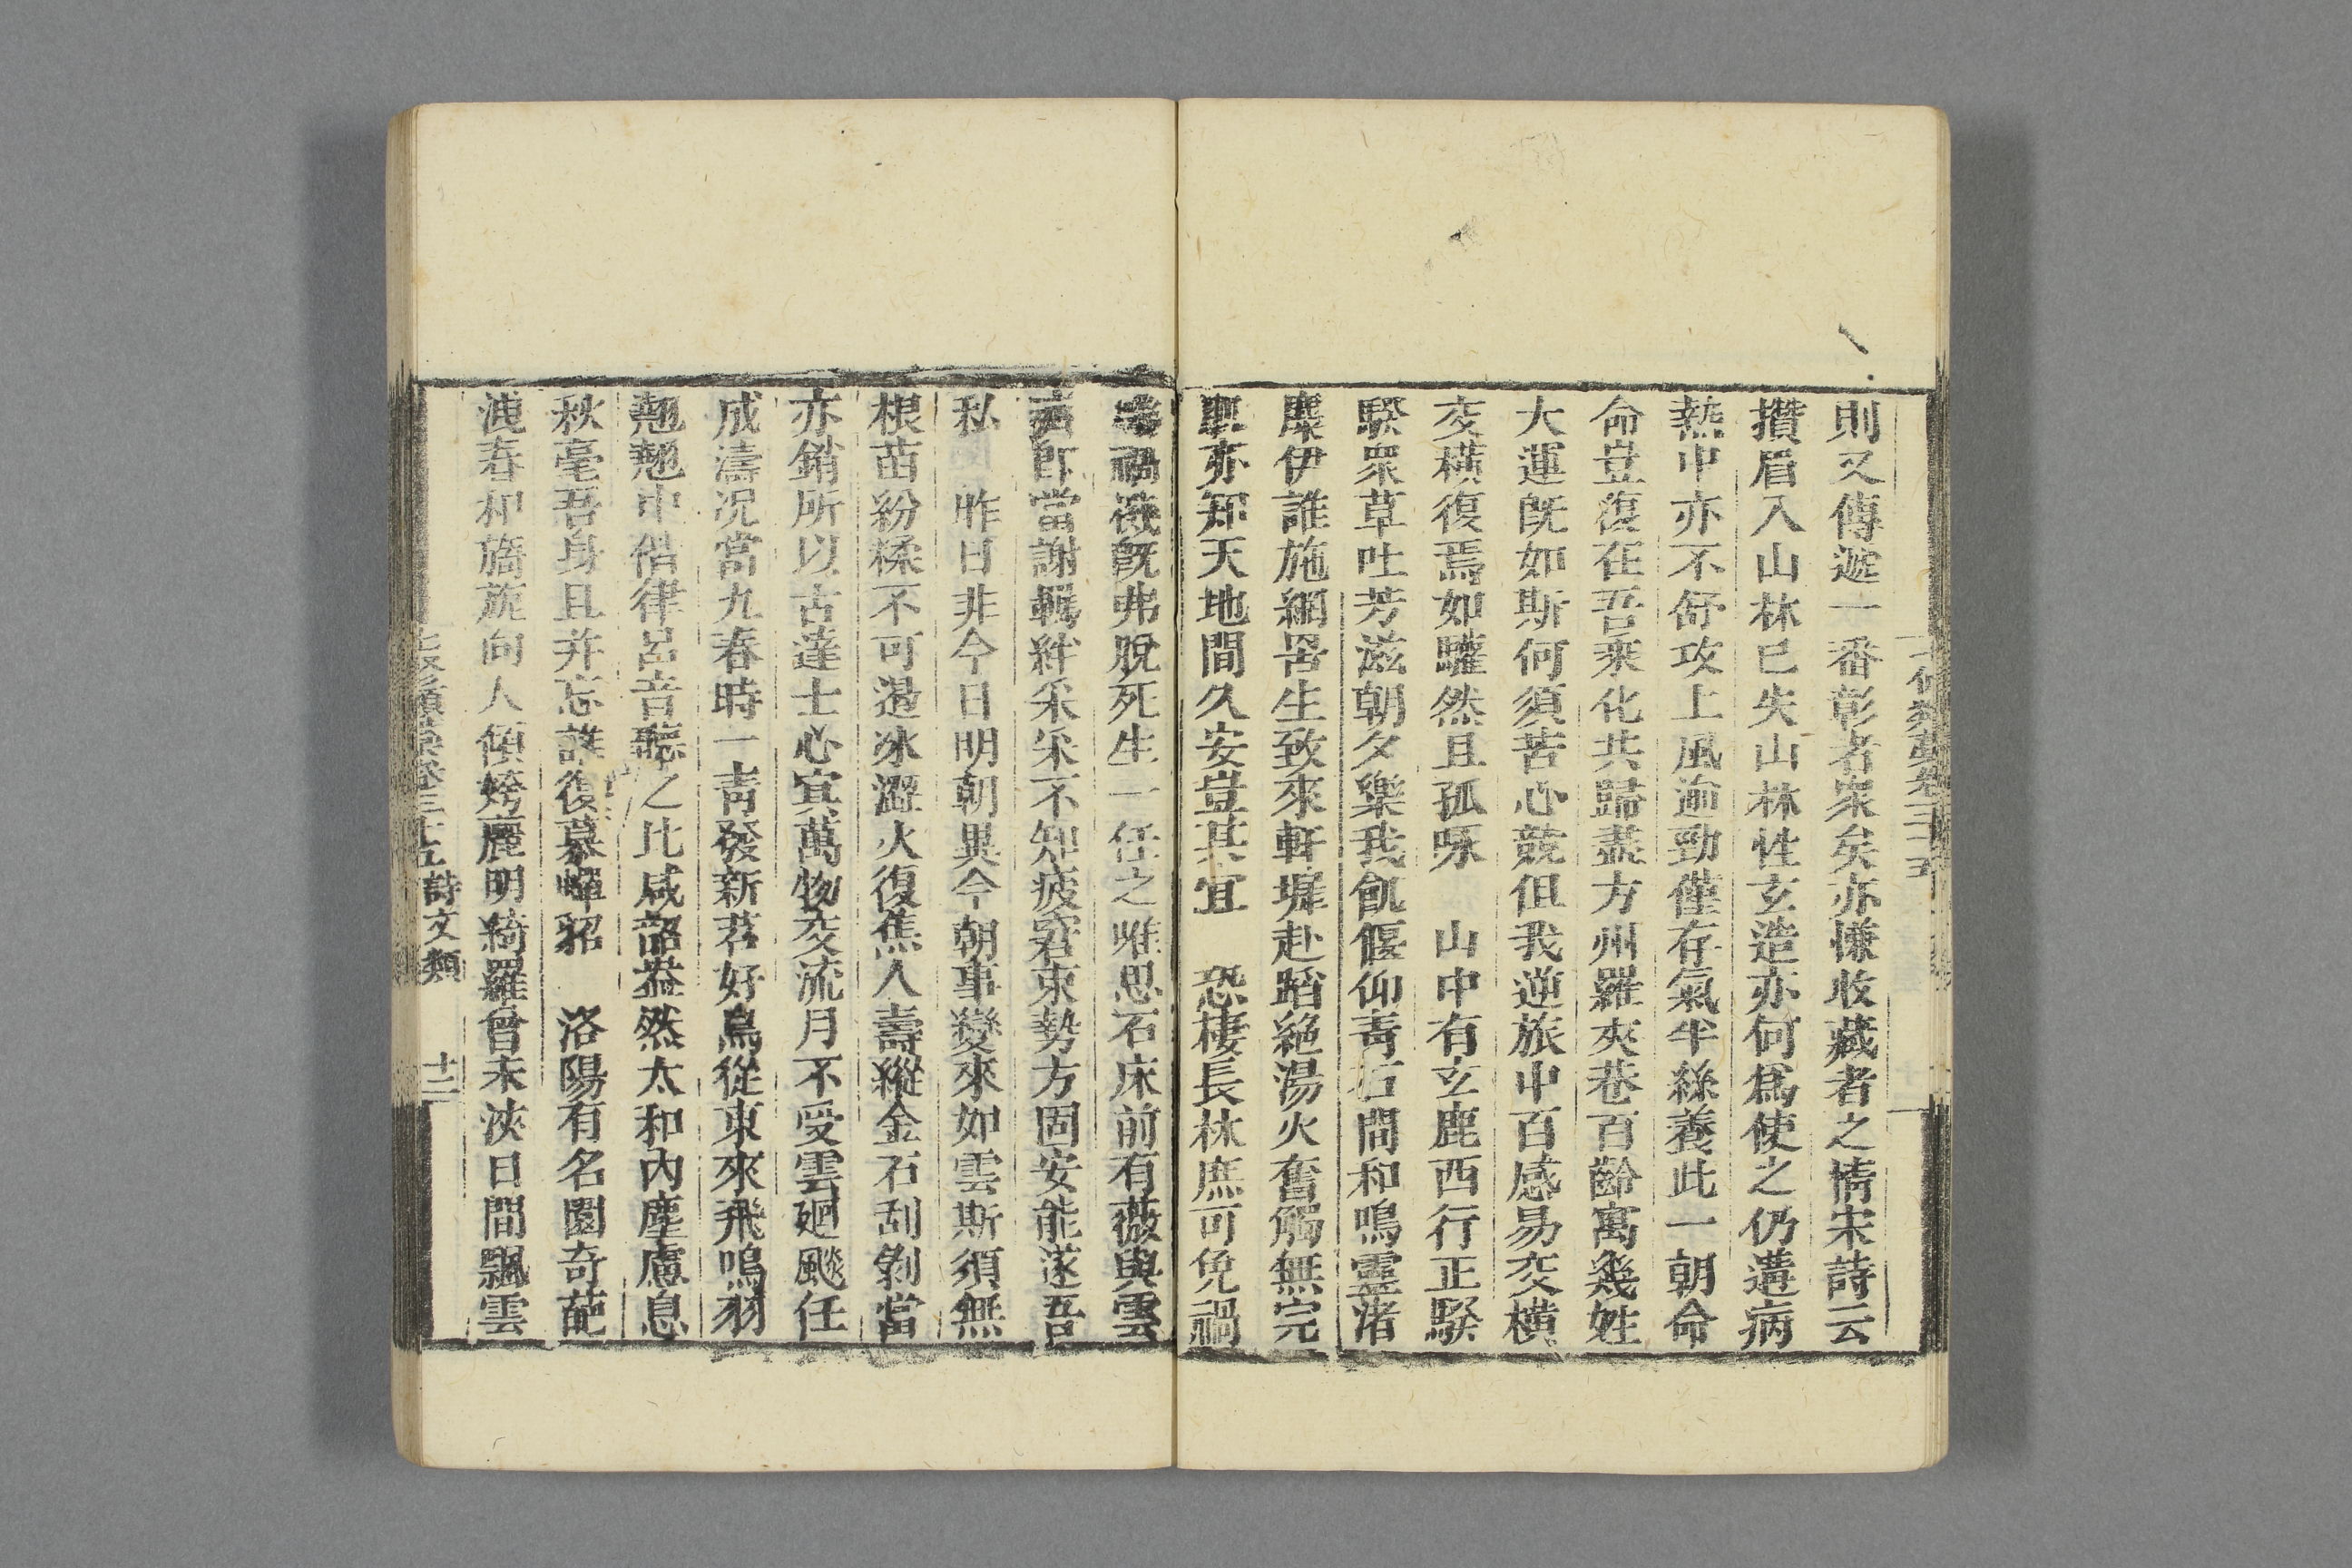 則又傳遞一番彰者衆矣亦慊收藏者之情宋詩云
攢眉入山林已失山林性玄造亦何爲使之仍遘病
熱中亦不舒攻上風逾勁僅存氣半絲養此一朝命
命豈復在吾乘化共歸盡方州羅夾巷百齡寓幾姓
大運旣如斯何須苦心競但我逆旅中百感易交橫
交橫復焉如驩然且孤𠵽　山中有玄鹿西行正騤
騤衆草吐芳滋朝夕樂我飢偃仰靑石間和鳴靈渚
麋伊誰施網罟生致來軒墀赴蹈絕湯火奮觸無完
亦知天地間久安豈其宜　恐棲長林庶可免禍
禍機旣弗脫死生一任之唯思石床前有薇與雲
卽當謝羈絆采采不知疲窘束勢方固安能遂吾
私　昨日非今日明朝異今朝事變來如雲斯須無
根苗紛糅不可邊冰澀火復焦人壽縱金石刮剝當
亦銷所以古達士心宜萬物交流月不受雲廻颷任
成濤況當九春時一靑發新茗好鳥從東來飛鳴羽
翹翹中偕律呂音聽之比咸韶盎然太和內塵慮息
秋毫吾身且并忘誰復慕蟬貂　洛陽有名園奇葩
洩春和旖旎向人傾姱麗明綺羅曾未浹日間飄雲
詩文類　十二